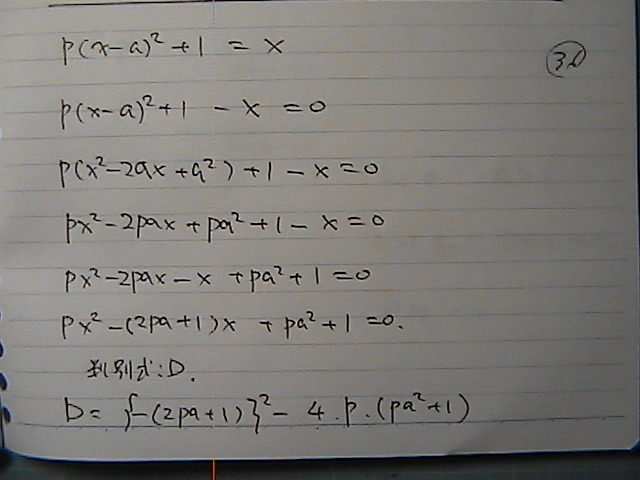 p(x-a)²+1 = x
p(x-a)²+1 - x = 0
p(x²-2ax+a²)+1-x=0
px²-2pax+pa²+1-x=0
px²-2pax-x+pa²+1=0
px²-(2pa+1)x+pa²+1=0.
判別式:D.
D={-(2pa+1)}²-4.p.(pa²+1)